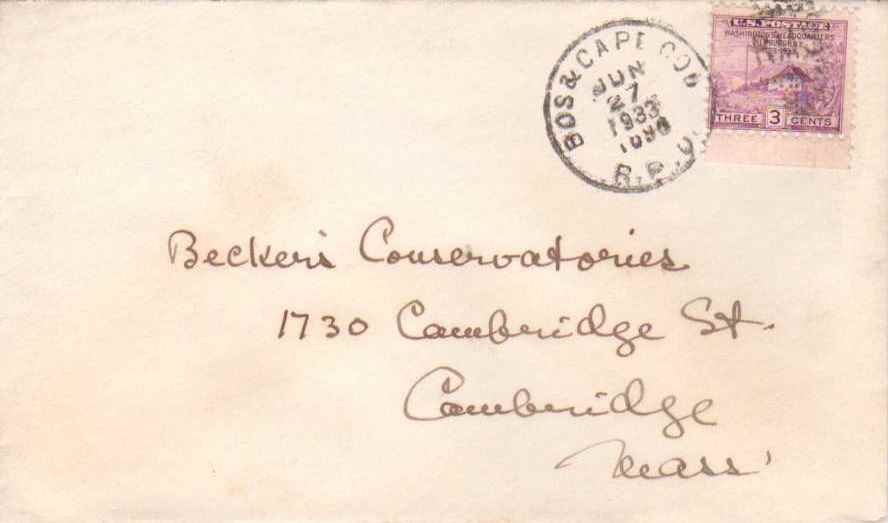 BOS & CAPE COD
JUN
27
1933
R.P.O.
U.S. POSTAGE
WASHINGTON'S HEADQUARTERS
THREE 3 CENTS
Becker's Conservatories
1730 Cambridge St.
Cambridge
Mass'